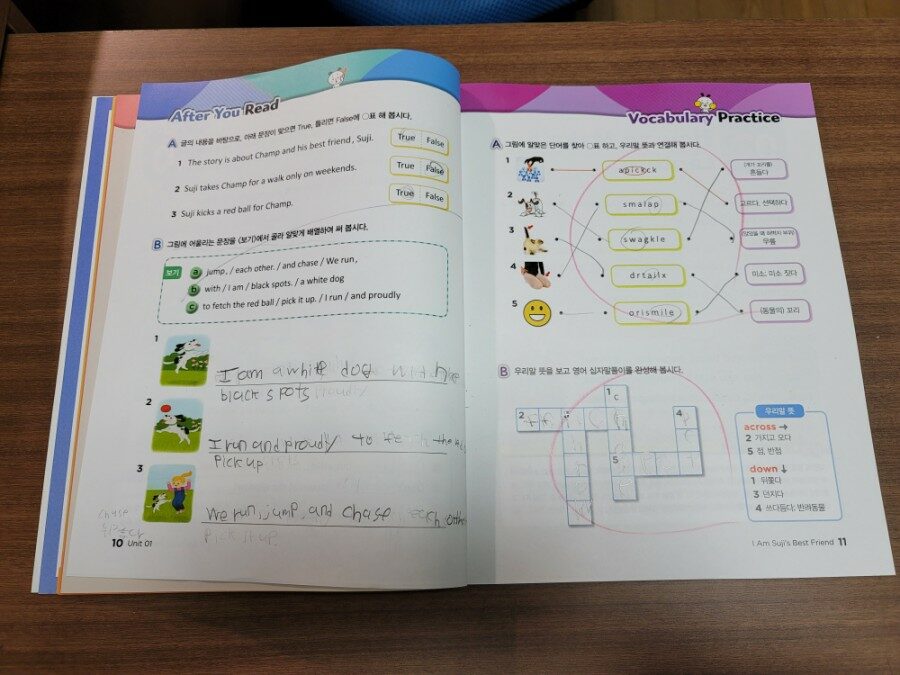 After You Read
A 글의 내용을 바탕으로, 아래 문장이 맞으면 True, 틀리면 False에 ○표 해 봅시다.
1 The story is about Champ and his best friend, Suji. True False
2 Suji takes Champ for a walk only on weekends. True False
3 Suji kicks a red ball for Champ. True False
B 그림에 어울리는 문장을 <보기>에서 골라 알맞게 배열하여 써 봅시다.
보기
a jump, / each other. / and chase / We run,
b with / I am / black spots. / a white dog
c to fetch the red ball / pick it up. / I run / and proudly
1
I am a white dog with
black spots
2
I run and proudly to fetch the
Pick up
3
We run, jump, and chase each other
pick it up.
chase
10 Unit 01
Vocabulary Practice
A 그림에 알맞은 단어를 찾아 ○표 하고, 우리말 뜻과 연결해 봅시다.
1 apickck (개가 꼬리를) 흔들다
2 smalap 고르다, 선택하다
3 swagkle 무릎
4 drtailx 미소; 미소 짓다
5 orismile (동물의) 꼬리
B 우리말 뜻을 보고 영어 십자말풀이를 완성해 봅시다.
1 c
2
3
4
5
우리말 뜻
across →
2 가지고 오다
5 점, 반점
down ↓
1 뒤쫓다
3 던지다
4 쓰다듬다; 반려동물
I Am Suji's Best Friend 11